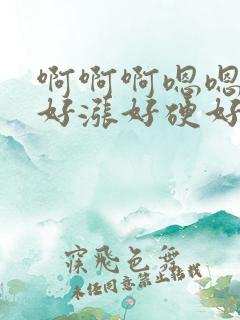 啊啊啊嗯嗯
好涨好硬好
寐飞色舞
未经同意禁止转载